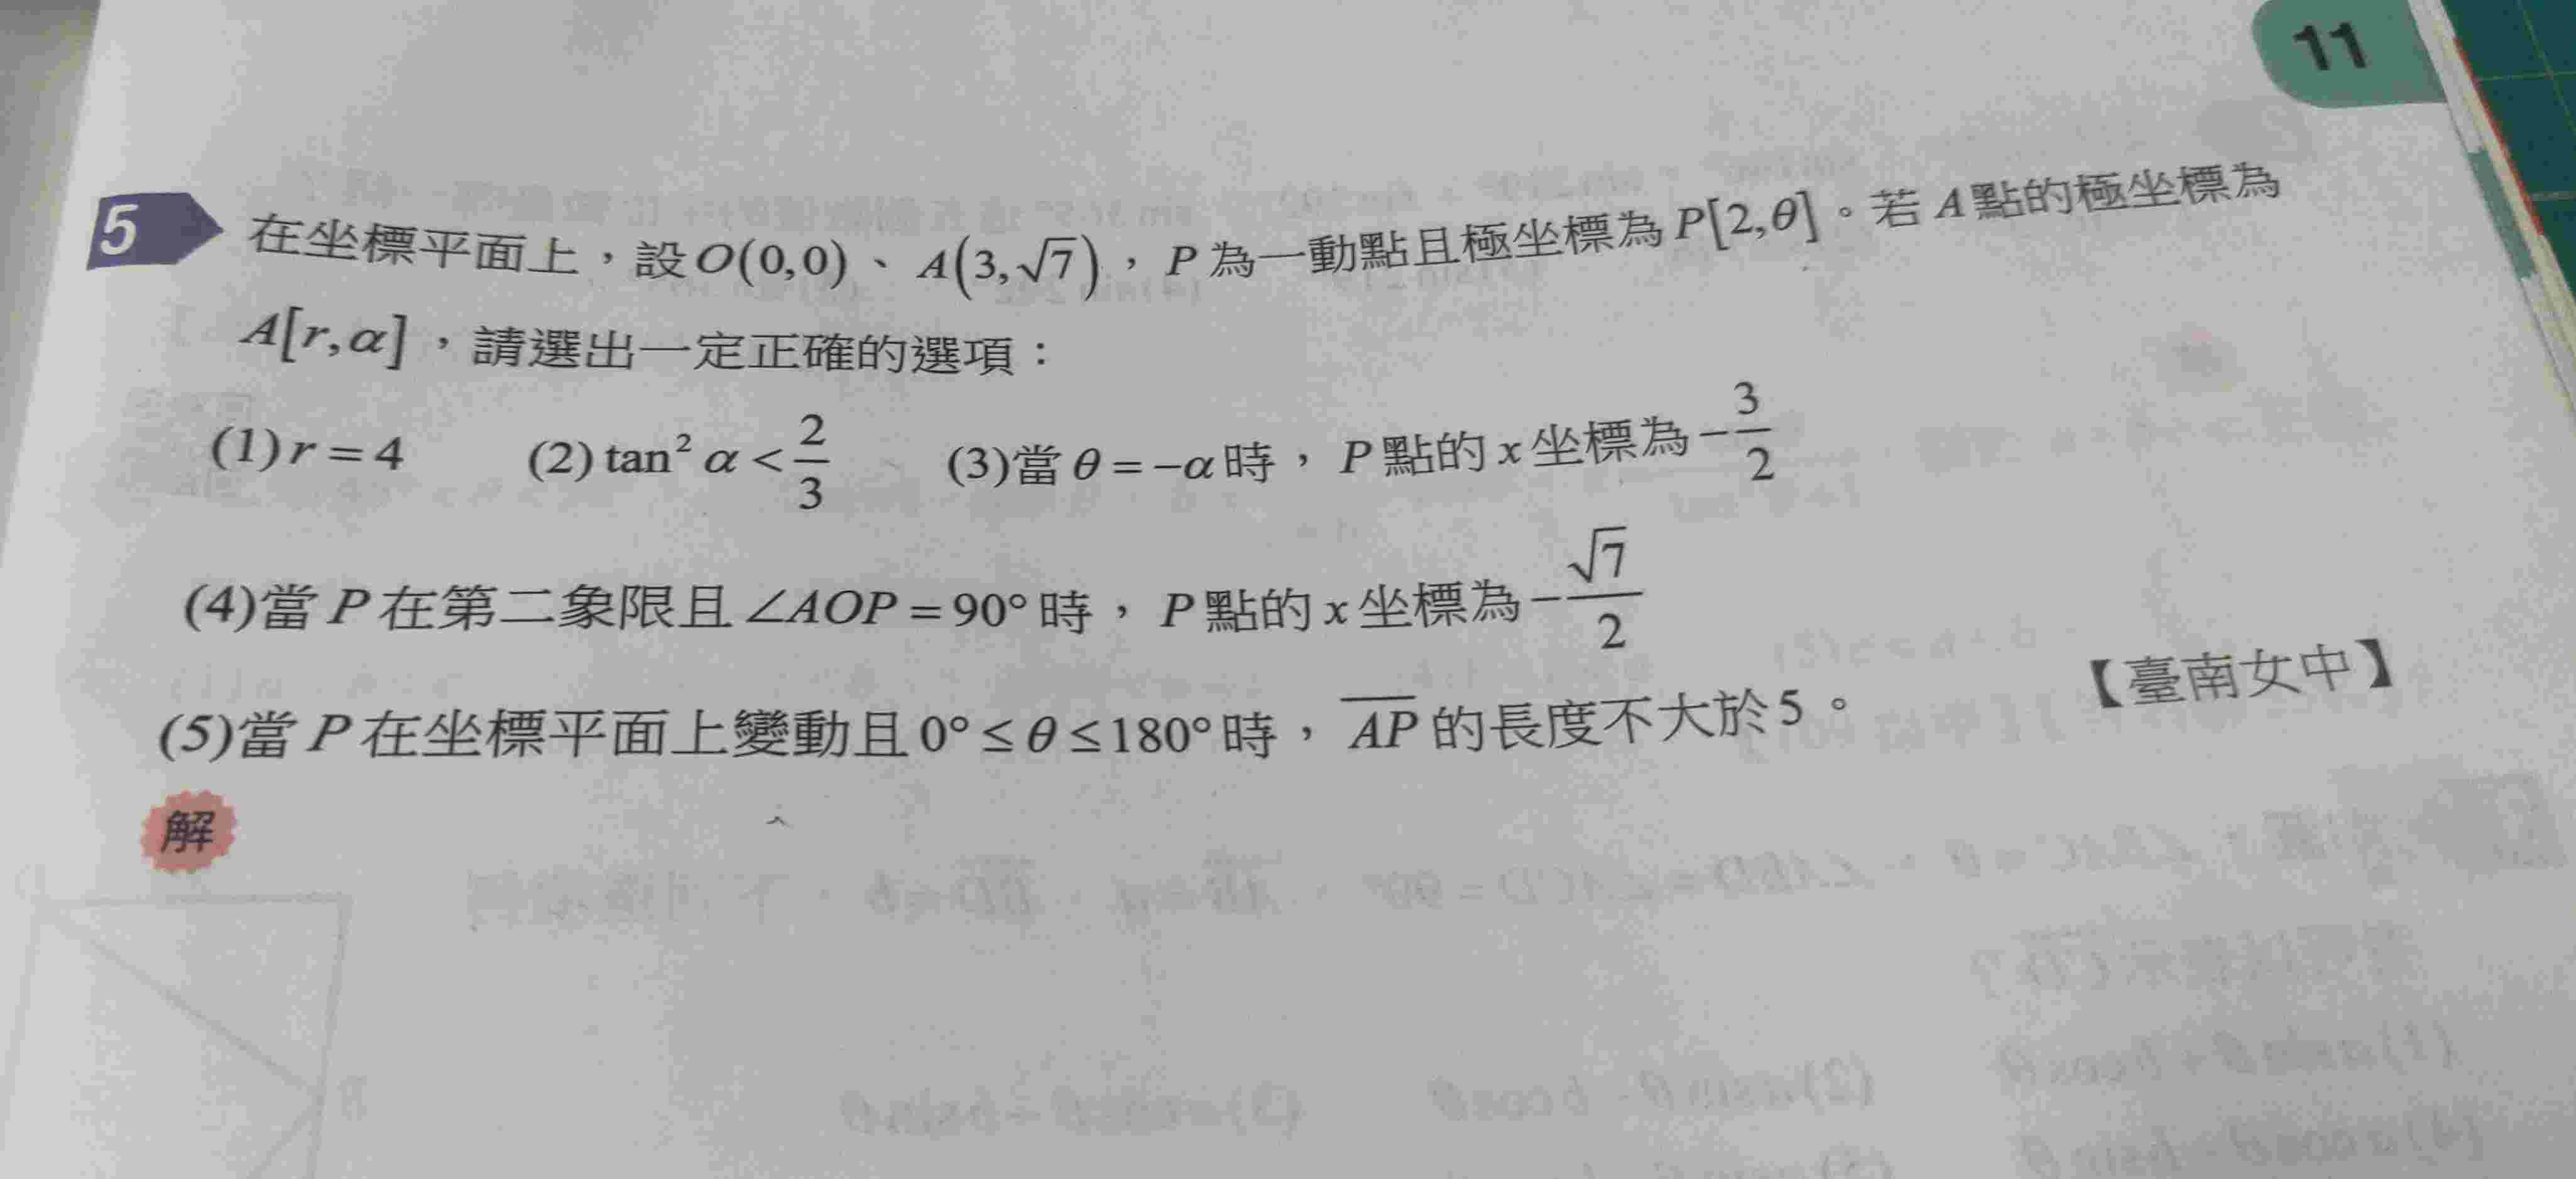 11
5 在坐標平面上，設O(0,0)、A(3,√7)，P為一動點且極坐標為P[2,θ]。若A點的極坐標為
A[r,α]，請選出一定正確的選項：
(1)r=4 (2)tan²α<2/3 (3)當θ=-α時，P點的x坐標為-3/2
(4)當P在第二象限且∠AOP=90°時，P點的x坐標為-√7/2
(5)當P在坐標平面上變動且0°≤θ≤180°時，A̅P̅的長度不大於5。 【臺南女中】
解